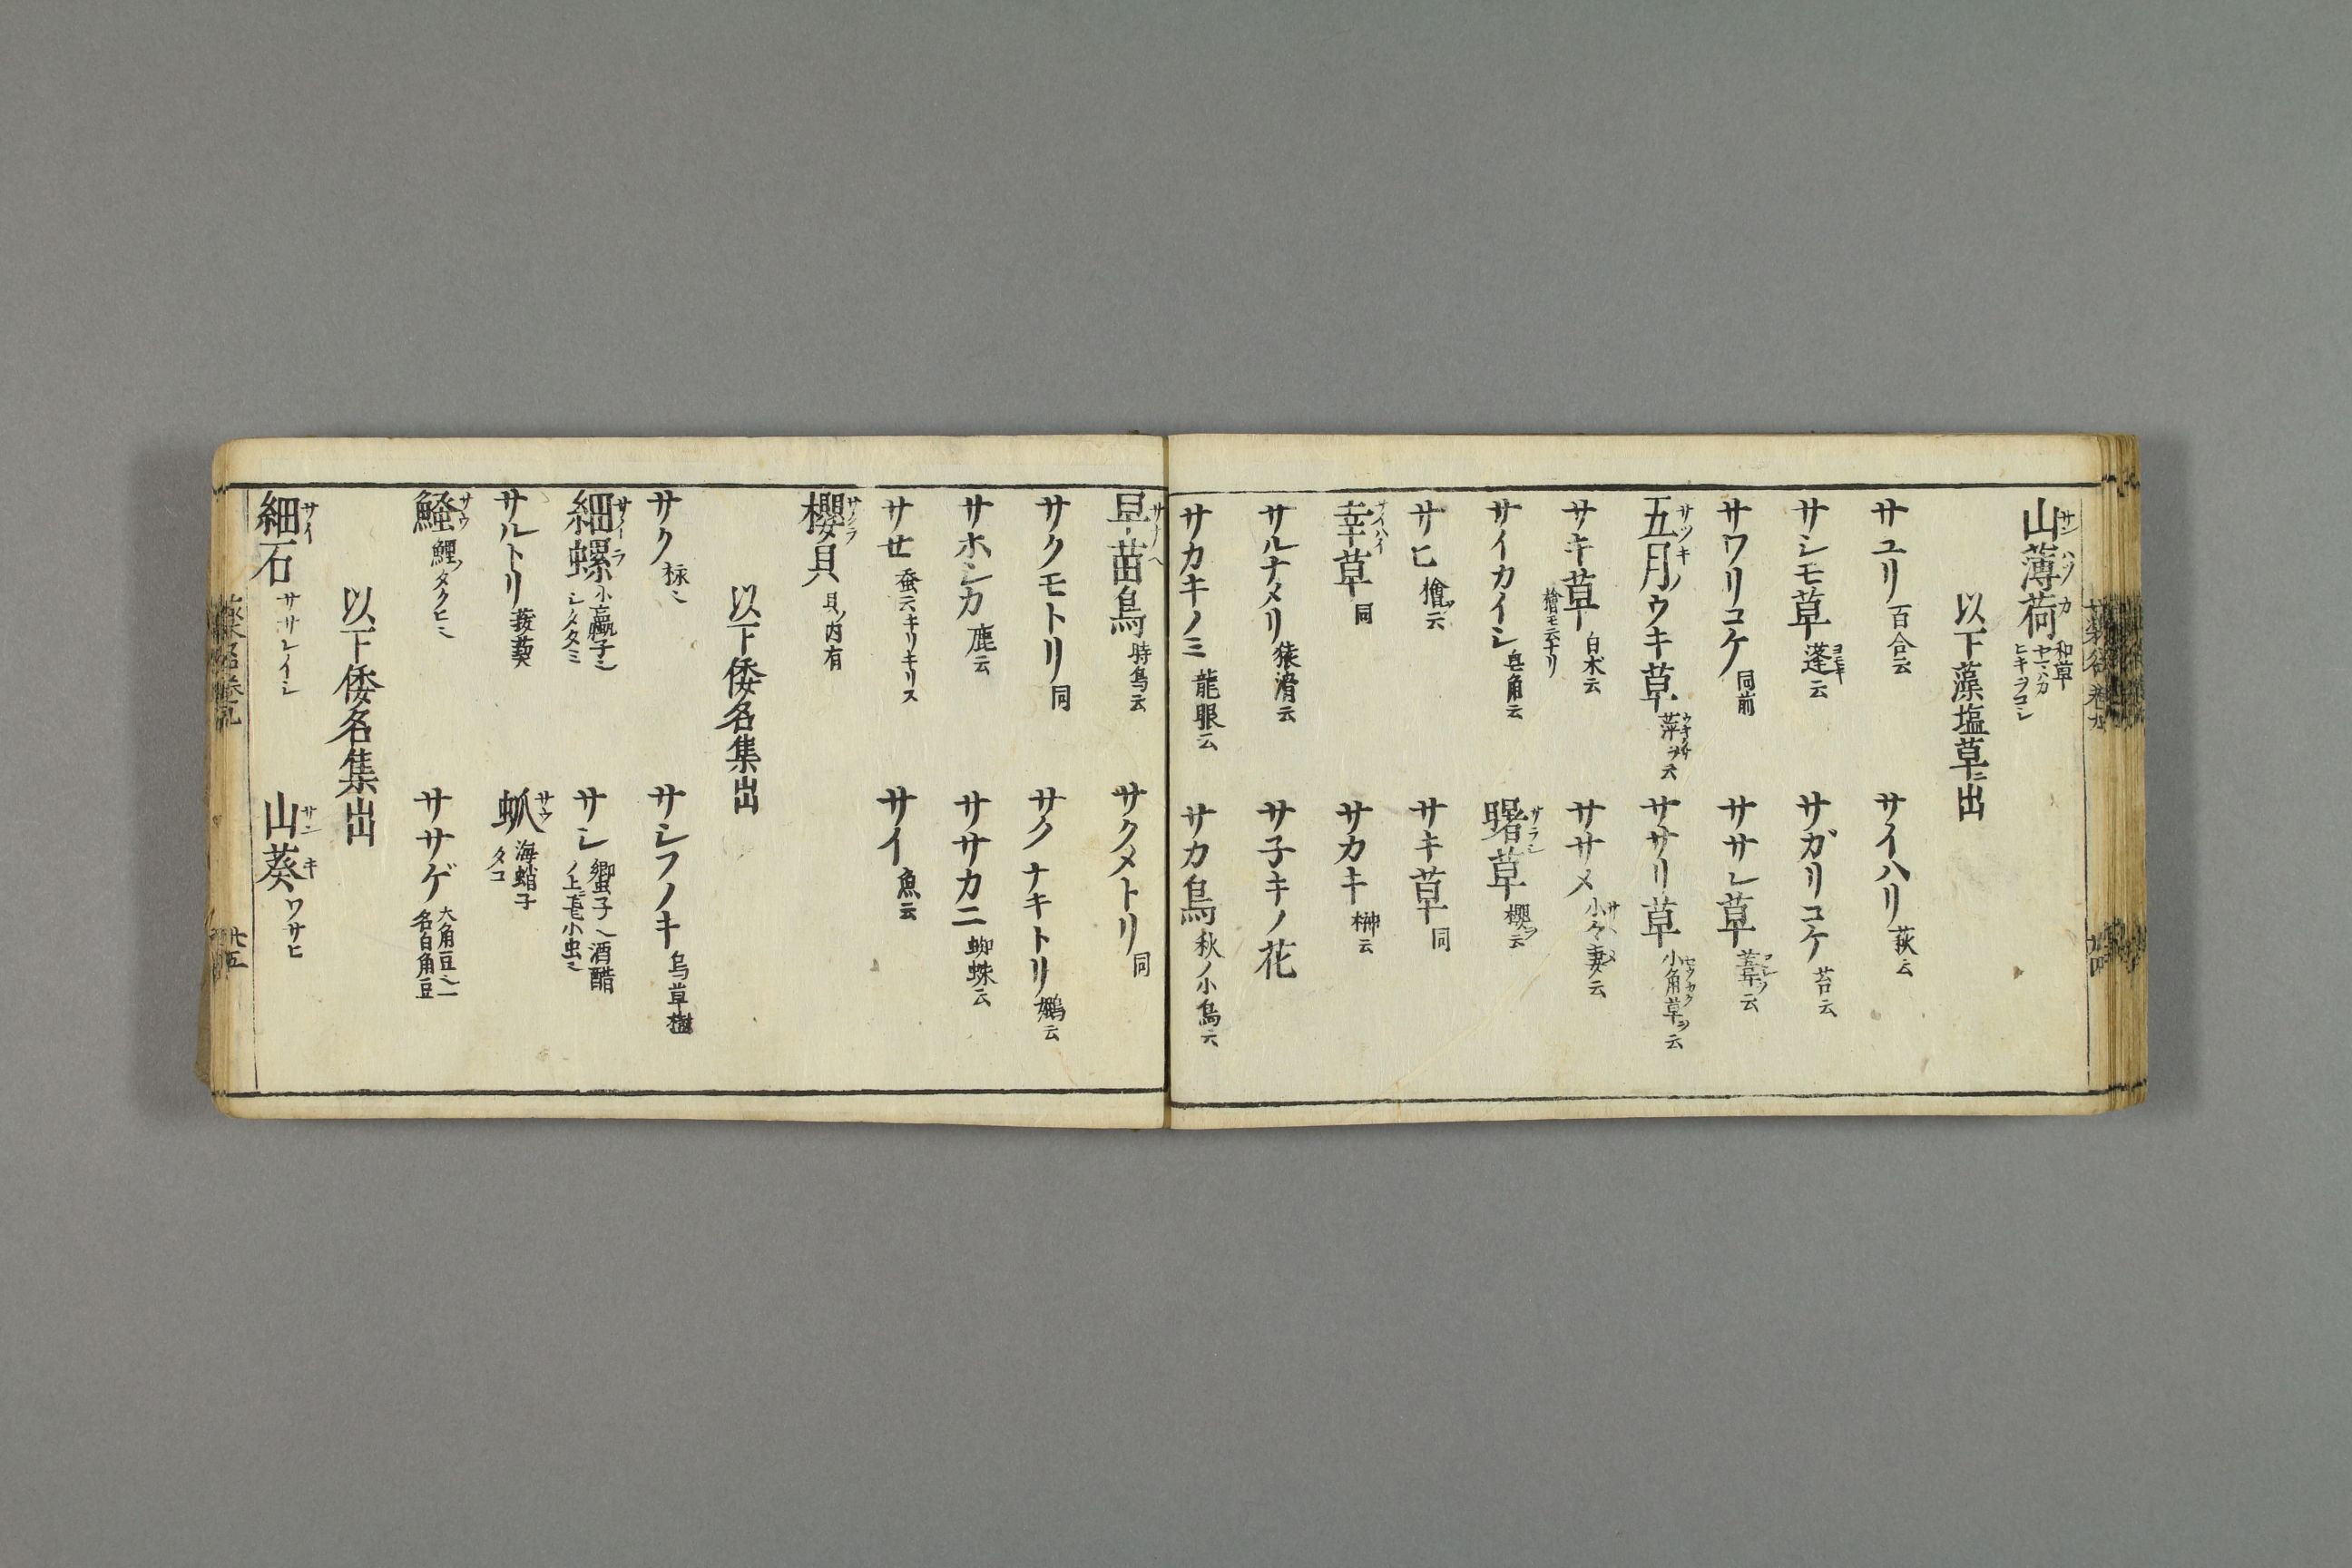 山薄荷 サンハツカ 和草ヤマハカヒキヲコシ
以下藻塩草ニ出
サユリ 百合云 サイハリ 萩云
サシモ草 蓬云 ヨモキ サガリコケ 苔云
サワリコケ 同前 ササレ草 葦ヲ云
五月ノウキ草 サツキ 萍ヲ云 ウキクサ ササリ草 小角草ヲ云 セウカク
サキ草 白木云 檜モ云ナリ ササメ 小々妻ヲ云
サイカイシ 皂角云 曙草 サラシ 櫻ヲ云
サヒ 檜云 サキ草 同
幸草 サイハイ 同 サカキ 榊云
サルナメリ 猿滑云 サ子キノ花
サカキノミ 龍眼云 サカ鳥 秋ノ小鳥云
早苗鳥 サナヘ 時鳥云 サクメトリ 同
サクモトリ 同 サクナキトリ 鵼云
サホシカ 鹿云 ササカニ 蜘蛛云
サセ 蚕云キリキリス サイ 魚云
櫻貝 サクラ 貝ノ内有
以下倭名集出
サク サシフノキ 烏草樹
細螺 サイラ 小蠃子シシタタミ サシ 蠁子 酒醋ノ上小虫ミ
サルトリ 菝葜 䖣 サウ 海蛸子タコ
鰠 サウ 鯉ノタクヒミ ササゲ 大角豆之一名白角豆
以下倭名集出
細石 サイ ササレイシ 山葵 サンキ ワサヒ